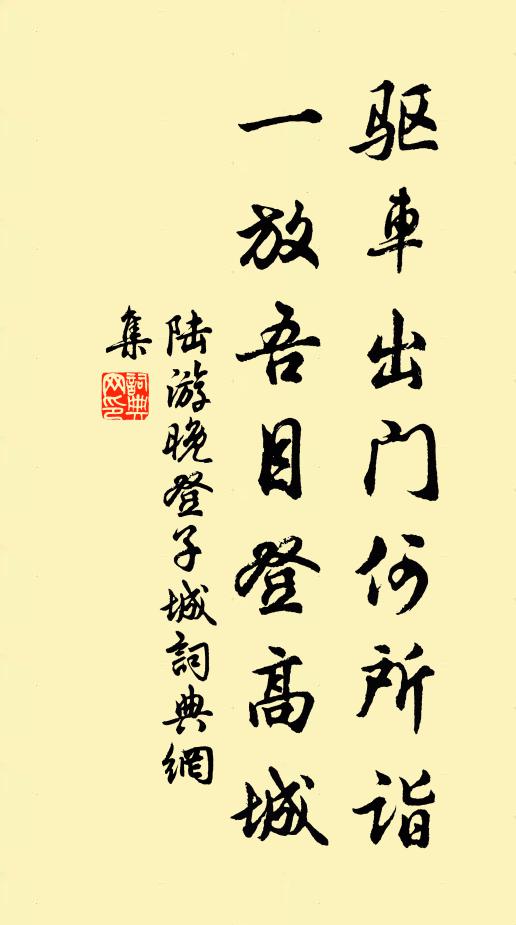 驱車出门何所诣
一放吾目登高城
陆游晚登子城詞典網
集
詞典
网印